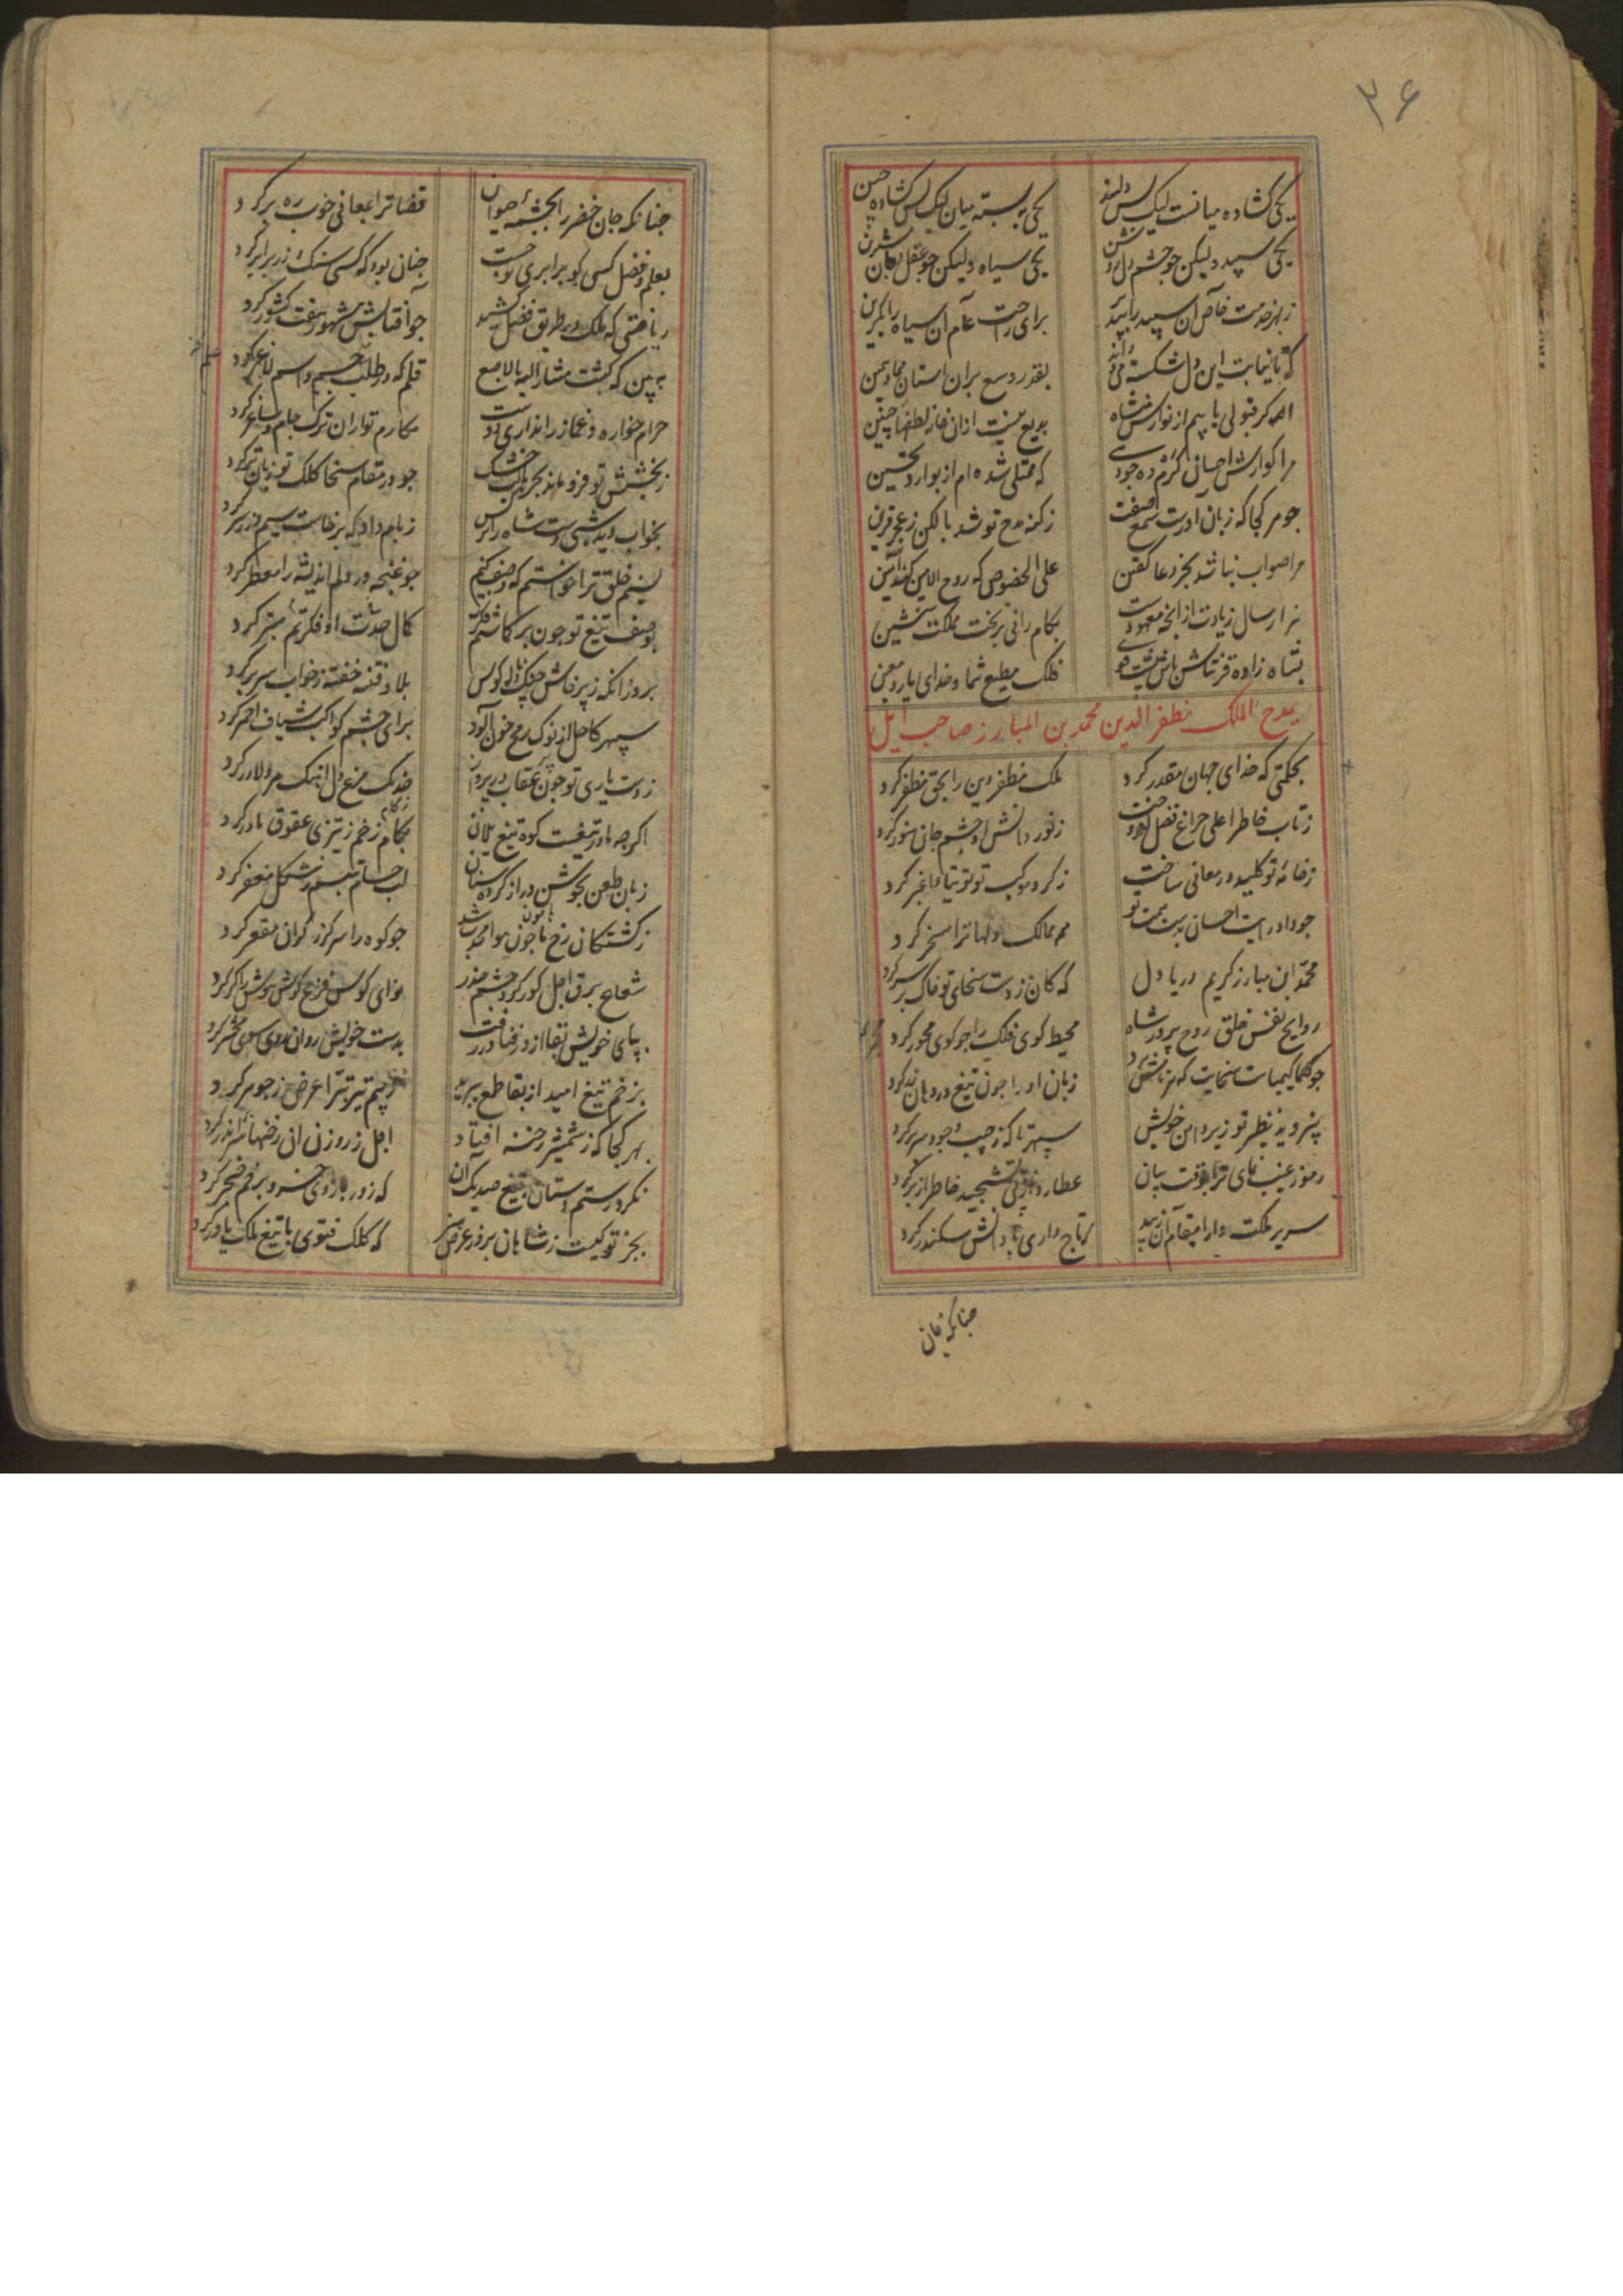 ۳۶
یکی کشاده میانست لیک بس دلبند
یکی ببسته میان لیک بس کشاده جبین
یکی سپید ولیکن جو جشم دل روشن
یکی سیاه ولیکن جو عقل جان شیرین
ز بهر خدمت خاص آن سپید را بپذیر
برای راحت عام آن سیاه را بکزین
که تا نیابت این دل شکسته
بقدر وسع بران استان
اکر قبولی یابیم از نوازش شاه
بدیع نیست ازان خاطر لطفها جنین
مرا کوارش احسانی کرم ده جود
که ممتلی شده ام از بوارد تحسین
جو هر کجا که زبان آورست شمع صفت
ز کنه مدح تو شد بالکن ز عجز قرین
مرا صواب نباشد بجز دعا کفتن
علی الخصوص که روح الامین کند آمین
هزار سال زیادت از انجه معهودست
بکام رانی بر تخت مملکت بنشین
بشاه زاده قرنتاش
فلک مطیع شما و خدای یار و معین
بمدح الملک مظفر الدین محمد بن المبارز صاحب ایل
بحکمتی که خدای جهان مقدر کرد
ملک مظفر دین را بحق مظفر کرد
ز تاب خاطر اعلی جراغ فضل افروخت
ز نور دانش او جشم جان منور کرد
ز خامه تو کلید در معانی ساخت
ز کرد موکب تو توتیای اغبر کرد
جو داد رایت احسان بدست همت تو
همه ممالک دلها ترا مسخر کرد
محمد ابن مبارز کریم دریا دل
که کان ز دست سخای تو خاک بر سر کرد
روایح نفس خلق روح پرور شاه
محیط کوی فلک را جو کوی مجمر کرد
جو
زبان او را جون تیغ در دهان زر کرد
پنروید نظیر تو زیر دامن خویش
سپهر تا که ز جیب وجود سر بر کرد
رموز غیب نمای ترا بوقت بیان
عطارد از پی تشحیذ خاطر از بر کرد
سریر مملکت دارا مقام آن زیبد
که تاج داری با دانش سکندر کرد
جنانکه جان
جنانکه جان خضر را بجشمه حیوان
قضا ترا بمعانی خوب رهبر کرد
بعلم و فضل کسی کو برابری تو جست
جنان بود که کسی سنک را زر برابر کرد
ریاضتی که ملک در طریق فضل کشید
جو آفتابش مشهور هفت کشور کرد
به بین که کشت مشار الیه بالاصبع
قلم که در طلب علم جسم لاغر کرد
حرام خواره و غماز را نداری دوست
مکارم تو ازان ترک جام و ساغر کرد
ز بخشش تو فرو ماند بحر با لب خشک
جو در مقام سخا کلک تو زبان تر کرد
بخواب دید شبی دست شاه را نرکس
ز بامداد که برخاست سیم و زر بر کرد
نسیم خلق ترا خواستم که وصف کنم
جو غنجه در دلم اندیشه را معطر کرد
بوصف تیغ تو جون بر کماشتم فکرت
کمال حدت او فکرتم مبتر کرد
بروز انکه ز پرخاش جنک و ناله کوس
بلا و فتنه خفته ز خواب سر بر کرد
سپهر کاحل از نوک رمح خون آلود
برای جشم کواکب شیاف احمر کرد
ز دست یاری تو جون عقاب در پرواز
خدنک مرغ دل آهنک مرد لاور کرد
اکر جه مادر تیغست کوه تیغ یلان
بکام زخم ز تیزی عقوق مادر کرد
زبان طعن بجوشن دراز کرده سنان
لب حسام تبسم بشکل مغفر کرد
ز کشتکان رخ هامون جون هوا محدب شد
جو کوه را سر کرز کران مقعر کرد
شعاع برق اجل کور کرد جشم حذر
نوای کوس فزع کوش هوش را کر کرد
بپای خویش بقا از در فنا در رفت
بدست خویش روان روی سوی محشر کرد
بزخم تیغ امید از بقا طمع ببرید
ز بیم تیر تبرا عرض ز جوهر کرد
بهر کجا که ز شمشیر رخنه افتاد
اجل ز روزن ان رخنها سر اندر کرد
نکرد رستم دستان بتیغ صد یک آن
که زور بازوی خسرو بزخم خنجر کرد
بجز تو کیست ز شاهان بروز عرض هنر
که کلک فتوی با تیغ ملک یاور کرد